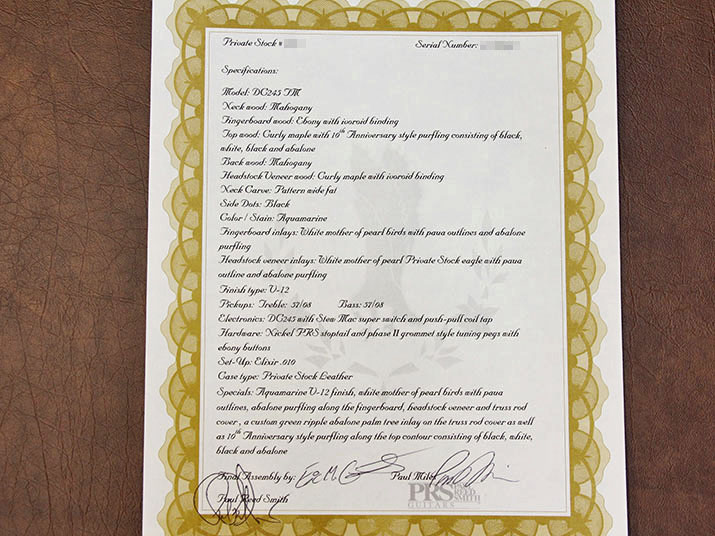 Private Stock #
Serial Number:
Specifications:
Model: DC245 TM
Neck wood: Mahogany
Fingerboard wood: Ebony with ivoroid binding
Top wood: Curly maple with 10th Anniversary style purfling consisting of black,
white, black and abalone
Back wood: Mahogany
Headstock Veneer wood: Curly maple with ivoroid binding
Neck Carve: Pattern wide fat
Side Dots: Black
Color / Stain: Aquamarine
Fingerboard inlays: White mother of pearl birds with paua outlines and abalone
purfling
Headstock veneer inlays: White mother of pearl Private Stock eagle with paua
outline and abalone purfling
Finish type: V-12
Pickups: Treble: 57/08 Bass: 57/08
Electronics: DC245 with Stew Mac super switch and push-pull coil tap
Hardware: Nickel PRS stoptail and phase II grommet style tuning pegs with
ebony buttons
Set-Up: Elixir .010
Case type: Private Stock Leather
Specials: Aquamarine V-12 finish, white mother of pearl birds with paua
outlines, abalone purfling along the fingerboard, headstock veneer and truss rod
cover , a custom green ripple abalone palm tree inlay on the truss rod cover as well
as 10th Anniversary style purfling along the top contour consisting of black, white,
black and abalone
Final Assembly by: Paul Miles
Paul Reed Smith
PRS PAUL REED SMITH
GUITARS